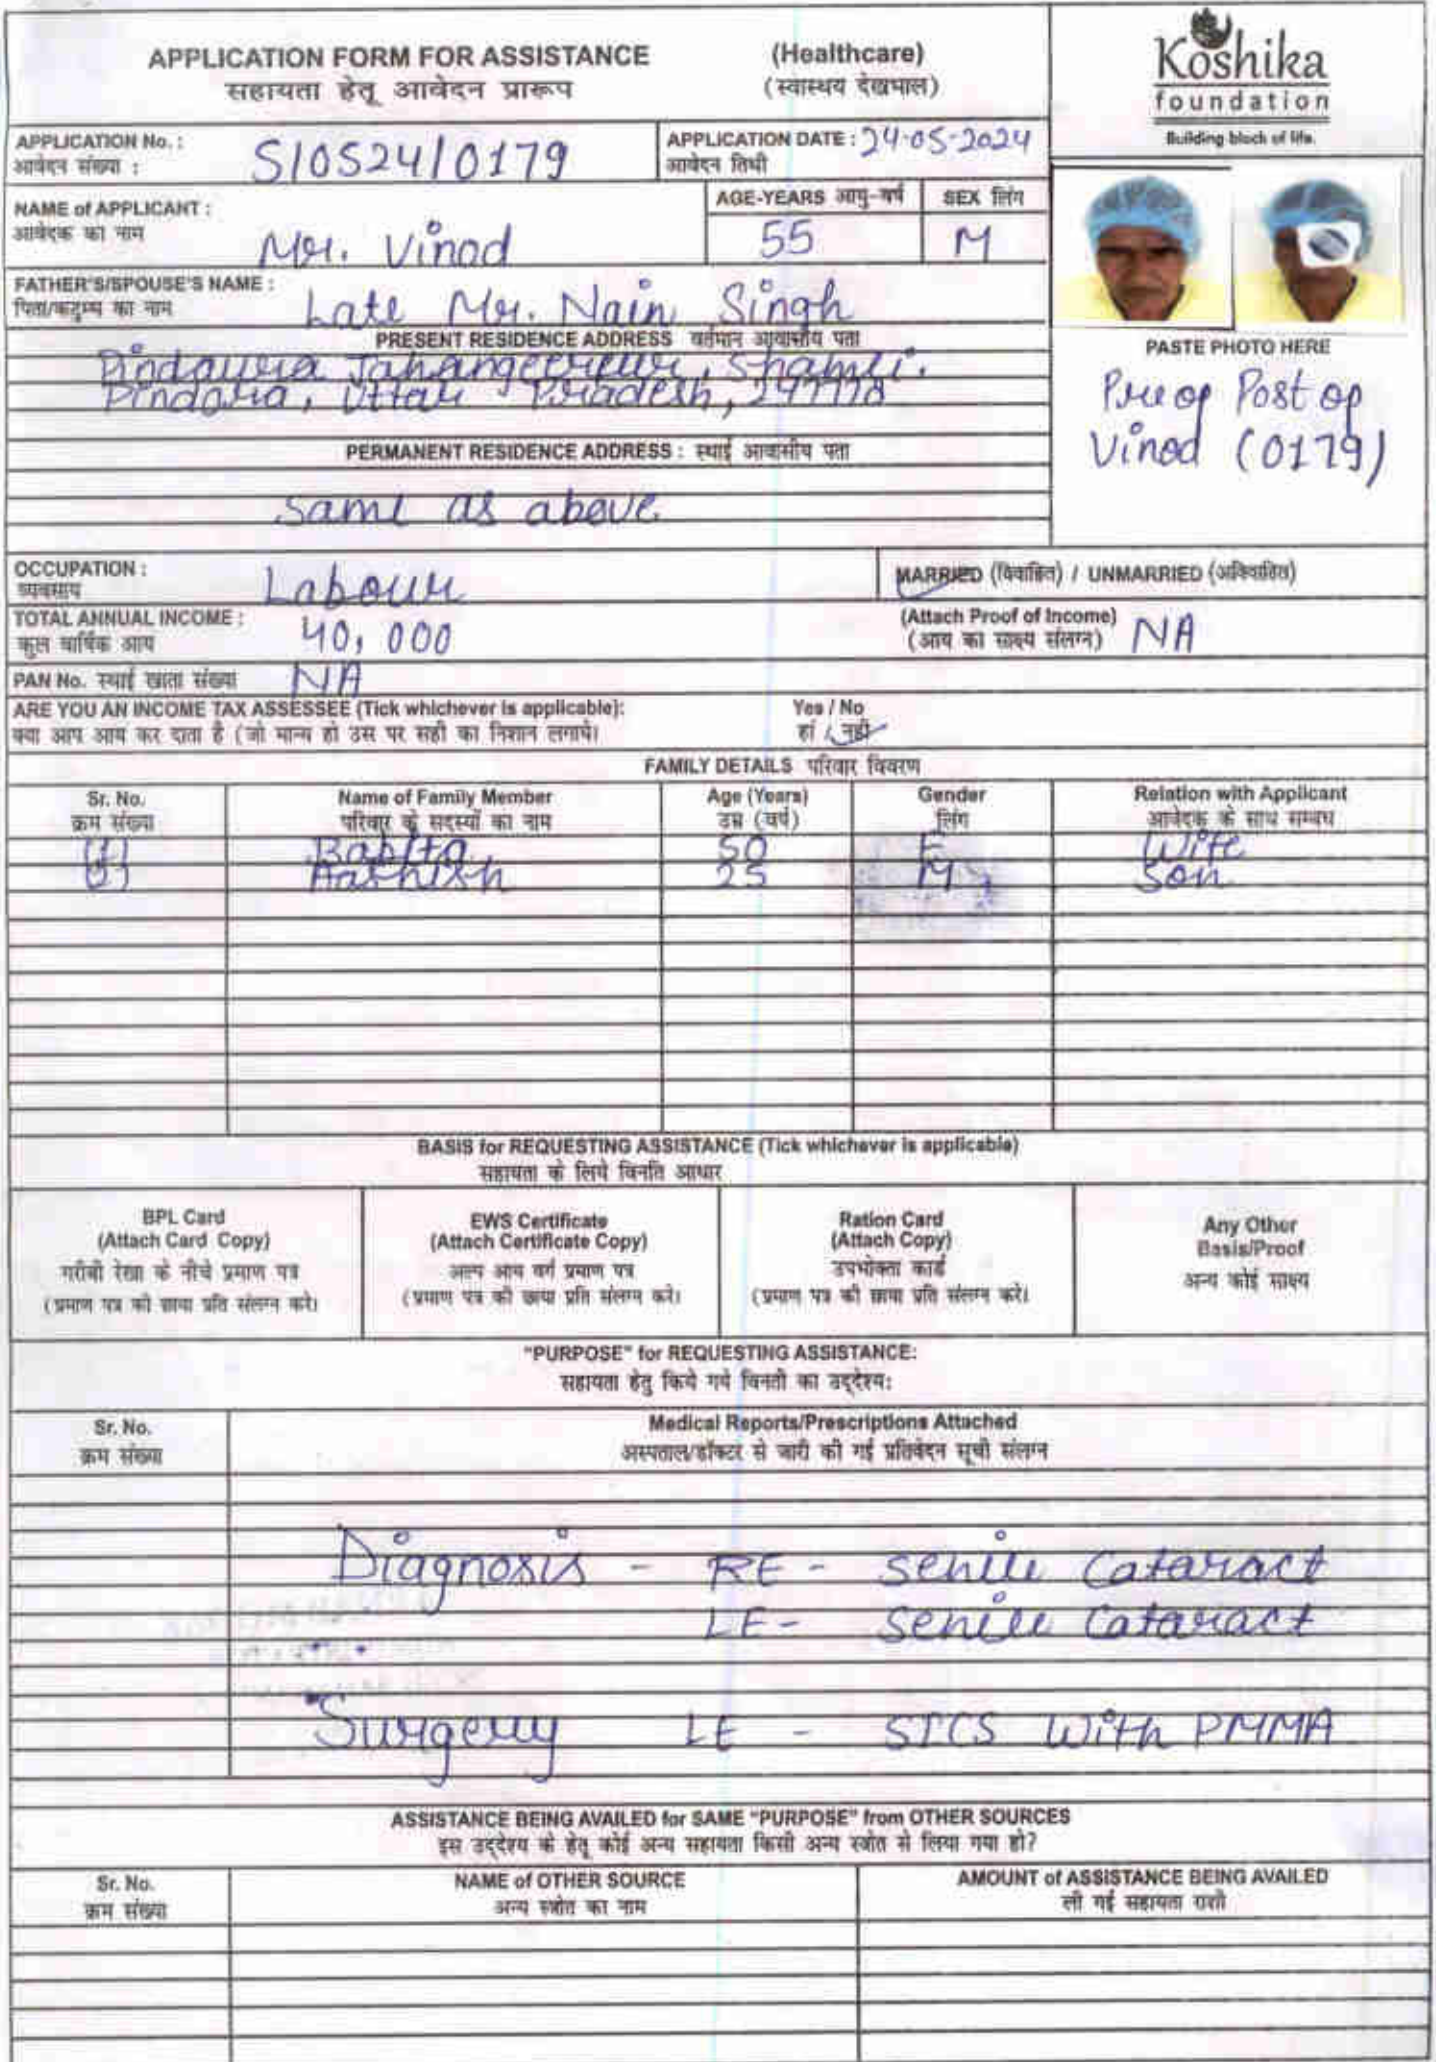 APPLICATION FORM FOR ASSISTANCE (Healthcare)
सहायता हेतू आवेदन प्रारूप (स्वास्थय देखभाल)
Koshika
foundation
Building block of life.
APPLICATION No. : S/0524/0179
आवेदन संख्या :
APPLICATION DATE : 24-05-2024
आवेदन तिथी
NAME of APPLICANT : Mr. Vinod
आवेदक का नाम
AGE-YEARS आयु-वर्ष 55
SEX लिंग M
FATHER'S/SPOUSE'S NAME : Late Mr. Nain Singh
पिता/कटुम्ब का नाम
PRESENT RESIDENCE ADDRESS वर्तमान आवासीय पता
Pindaura Jahangeerpur, Shamli.
Pindora, Uttar Pradesh, 247778
PERMANENT RESIDENCE ADDRESS : स्थाई आवासीय पता
same as above
PASTE PHOTO HERE
Pre op Post op
Vinod (0179)
OCCUPATION : Labour
व्यवसाय
MARRIED (विवाहित) / UNMARRIED (अविवाहित)
TOTAL ANNUAL INCOME : 40,000
कुल वार्षिक आय
(Attach Proof of Income) NA
(आय का साक्ष्य संलग्न)
PAN No. स्थाई खाता संख्या NA
ARE YOU AN INCOME TAX ASSESSEE (Tick whichever is applicable): Yes / No
क्या आप आय कर दाता है (जो मान्य हो उस पर सही का निशान लगाये। हां / नही
FAMILY DETAILS परिवार विवरण
Sr. No. Name of Family Member Age (Years) Gender Relation with Applicant
क्रम संख्या परिवार के सदस्यों का नाम उम्र (वर्ष) लिंग आवेदक के साथ सम्बध
(1) Babita 50 F Wife
(2) Aashish 25 M Son
BASIS for REQUESTING ASSISTANCE (Tick whichever is applicable)
सहायता के लिये विनति आधार
BPL Card
(Attach Card Copy)
गरीबी रेखा के नीचे प्रमाण पत्र
(प्रमाण पत्र की छाया प्रति संलग्न करे।
EWS Certificate
(Attach Certificate Copy)
अल्प आय वर्ग प्रमाण पत्र
(प्रमाण पत्र की छाया प्रति संलग्न करे।
Ration Card
(Attach Copy)
उपभोक्ता कार्ड
(प्रमाण पत्र की छाया प्रति संलग्न करे।
Any Other
Basis/Proof
अन्य कोई साक्ष्य
"PURPOSE" for REQUESTING ASSISTANCE:
सहायता हेतु किये गये विनती का उद्देश्य:
Sr. No. Medical Reports/Prescriptions Attached
क्रम संख्या अस्पताल/डॉक्टर से जारी की गई प्रतिवेदन सूची संलग्न
Diagnosis - RE - senile Cataract
LE - senile Cataract
Surgery LE - SICS With PMMA
ASSISTANCE BEING AVAILED for SAME "PURPOSE" from OTHER SOURCES
इस उद्देश्य के हेतू कोई अन्य सहायता किसी अन्य स्त्रोत से लिया गया हो?
Sr. No. NAME of OTHER SOURCE AMOUNT of ASSISTANCE BEING AVAILED
क्रम संख्या अन्य स्त्रोत का नाम ली गई सहायता राशी